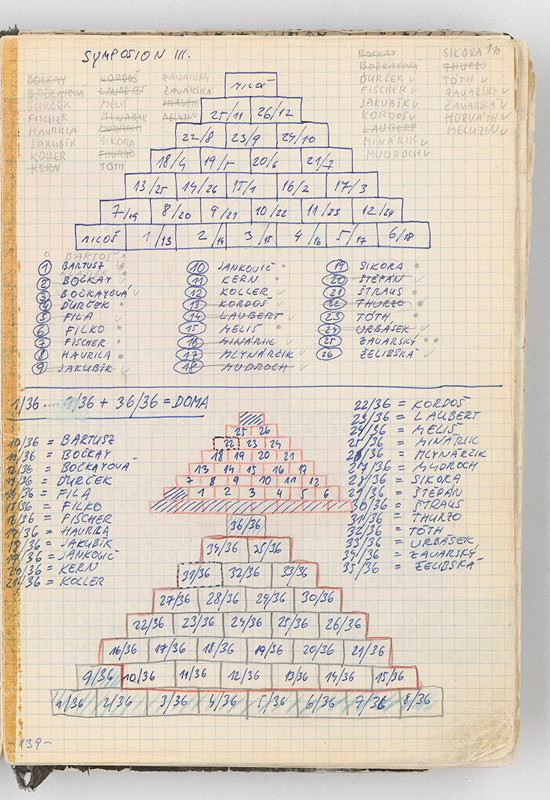 SYMPOSION III.
BOČKAY KORDOŠ ZAVARSKÝ
BOČKAYOVÁ LAUBERT ZAVARSKÁ
ĎURČEK MELIŠ
FISCHER MINÁRIK
HAURILLA
JAKUBÍK SIKORA
KOLLER THURZO
KERN TÓTH
BOČKAY SIKORA
BOČKAYOVÁ THURZO
ĎURČEK TÓTH
FISCHER ZAVARSKÝ
JAKUBÍK ZAVARSKÁ
KORDOŠ HORVÁTH
LAUBERT
MINÁRIK
MUDROCH
MILOŠ
25/11 26/12
22/8 23/9 24/10
18/4 19/5 20/6 21/7
13/25 14/26 15/1 16/2 17/3
7/19 8/20 9/21 10/22 11/23 12/24
MILOŠ 1/13 2/14 3/15 4/16 5/17 6/18
BARTOŠ
1 BARTUSZ
2 BOČKAY
3 BOČKAYOVÁ
4 ĎURČEK
5 FILA
6 FILKO
7 FISCHER
8 HAURILA
9 JAKUBÍK
10 JANKOVIČ
11 KERN
12 KOLLER
13 KORDOŠ
14 LAUBERT
15 MELIŠ
16 MINÁRIK
17 MLYNÁRČIK
18 MUDROCH
19 SIKORA
20 ŠTEPÁN
21 ŠTRAUS
22 THURZO
23 TÓTH
24 URBÁSEK
25 ZAVARSKÝ
26 ŽELIBSKÁ
1/36 .... 9/36 + 36/36 = DOMA
10/36 = BARTUSZ
11/36 = BOČKAY
12/36 = BOČKAYOVÁ
13/36 = ĎURČEK
14/36 = FILA
15/36 = FILKO
16/36 = FISCHER
17/36 = HAURILA
18/36 = JAKUBÍK
19/36 = JANKOVIČ
20/36 = KERN
21/36 = KOLLER
25 26
22 23 24
18 19 20 21
13 14 15 16 17
7 8 9 10 11 12
1 2 3 4 5 6
22/36 = KORDOŠ
23/36 = LAUBERT
24/36 = MELIŠ
25/36 = MINÁRIK
26/36 = MLYNÁRČIK
27/36 = MUDROCH
28/36 = SIKORA
29/36 = ŠTEPÁN
30/36 = ŠTRAUS
31/36 = THURZO
32/36 = TÓTH
33/36 = URBÁSEK
34/36 = ZAVARSKÝ
35/36 = ŽELIBSKÁ
36/36
34/36 35/36
31/36 32/36 33/36
27/36 28/36 29/36 30/36
22/36 23/36 24/36 25/36 26/36
16/36 17/36 18/36 19/36 20/36 21/36
9/36 10/36 11/36 12/36 13/36 14/36 15/36
1/36 2/36 3/36 4/36 5/36 6/36 7/36 8/36
-139-